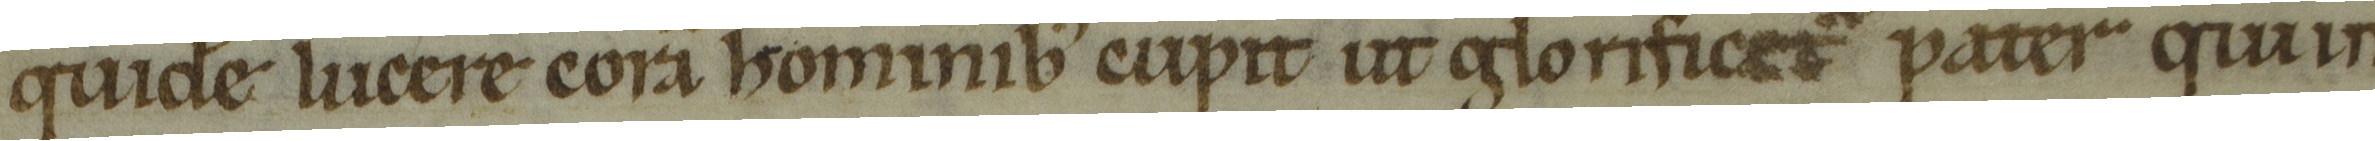 quidē lucere corā hominib' cupit ut glorificet᷑ pater qui in